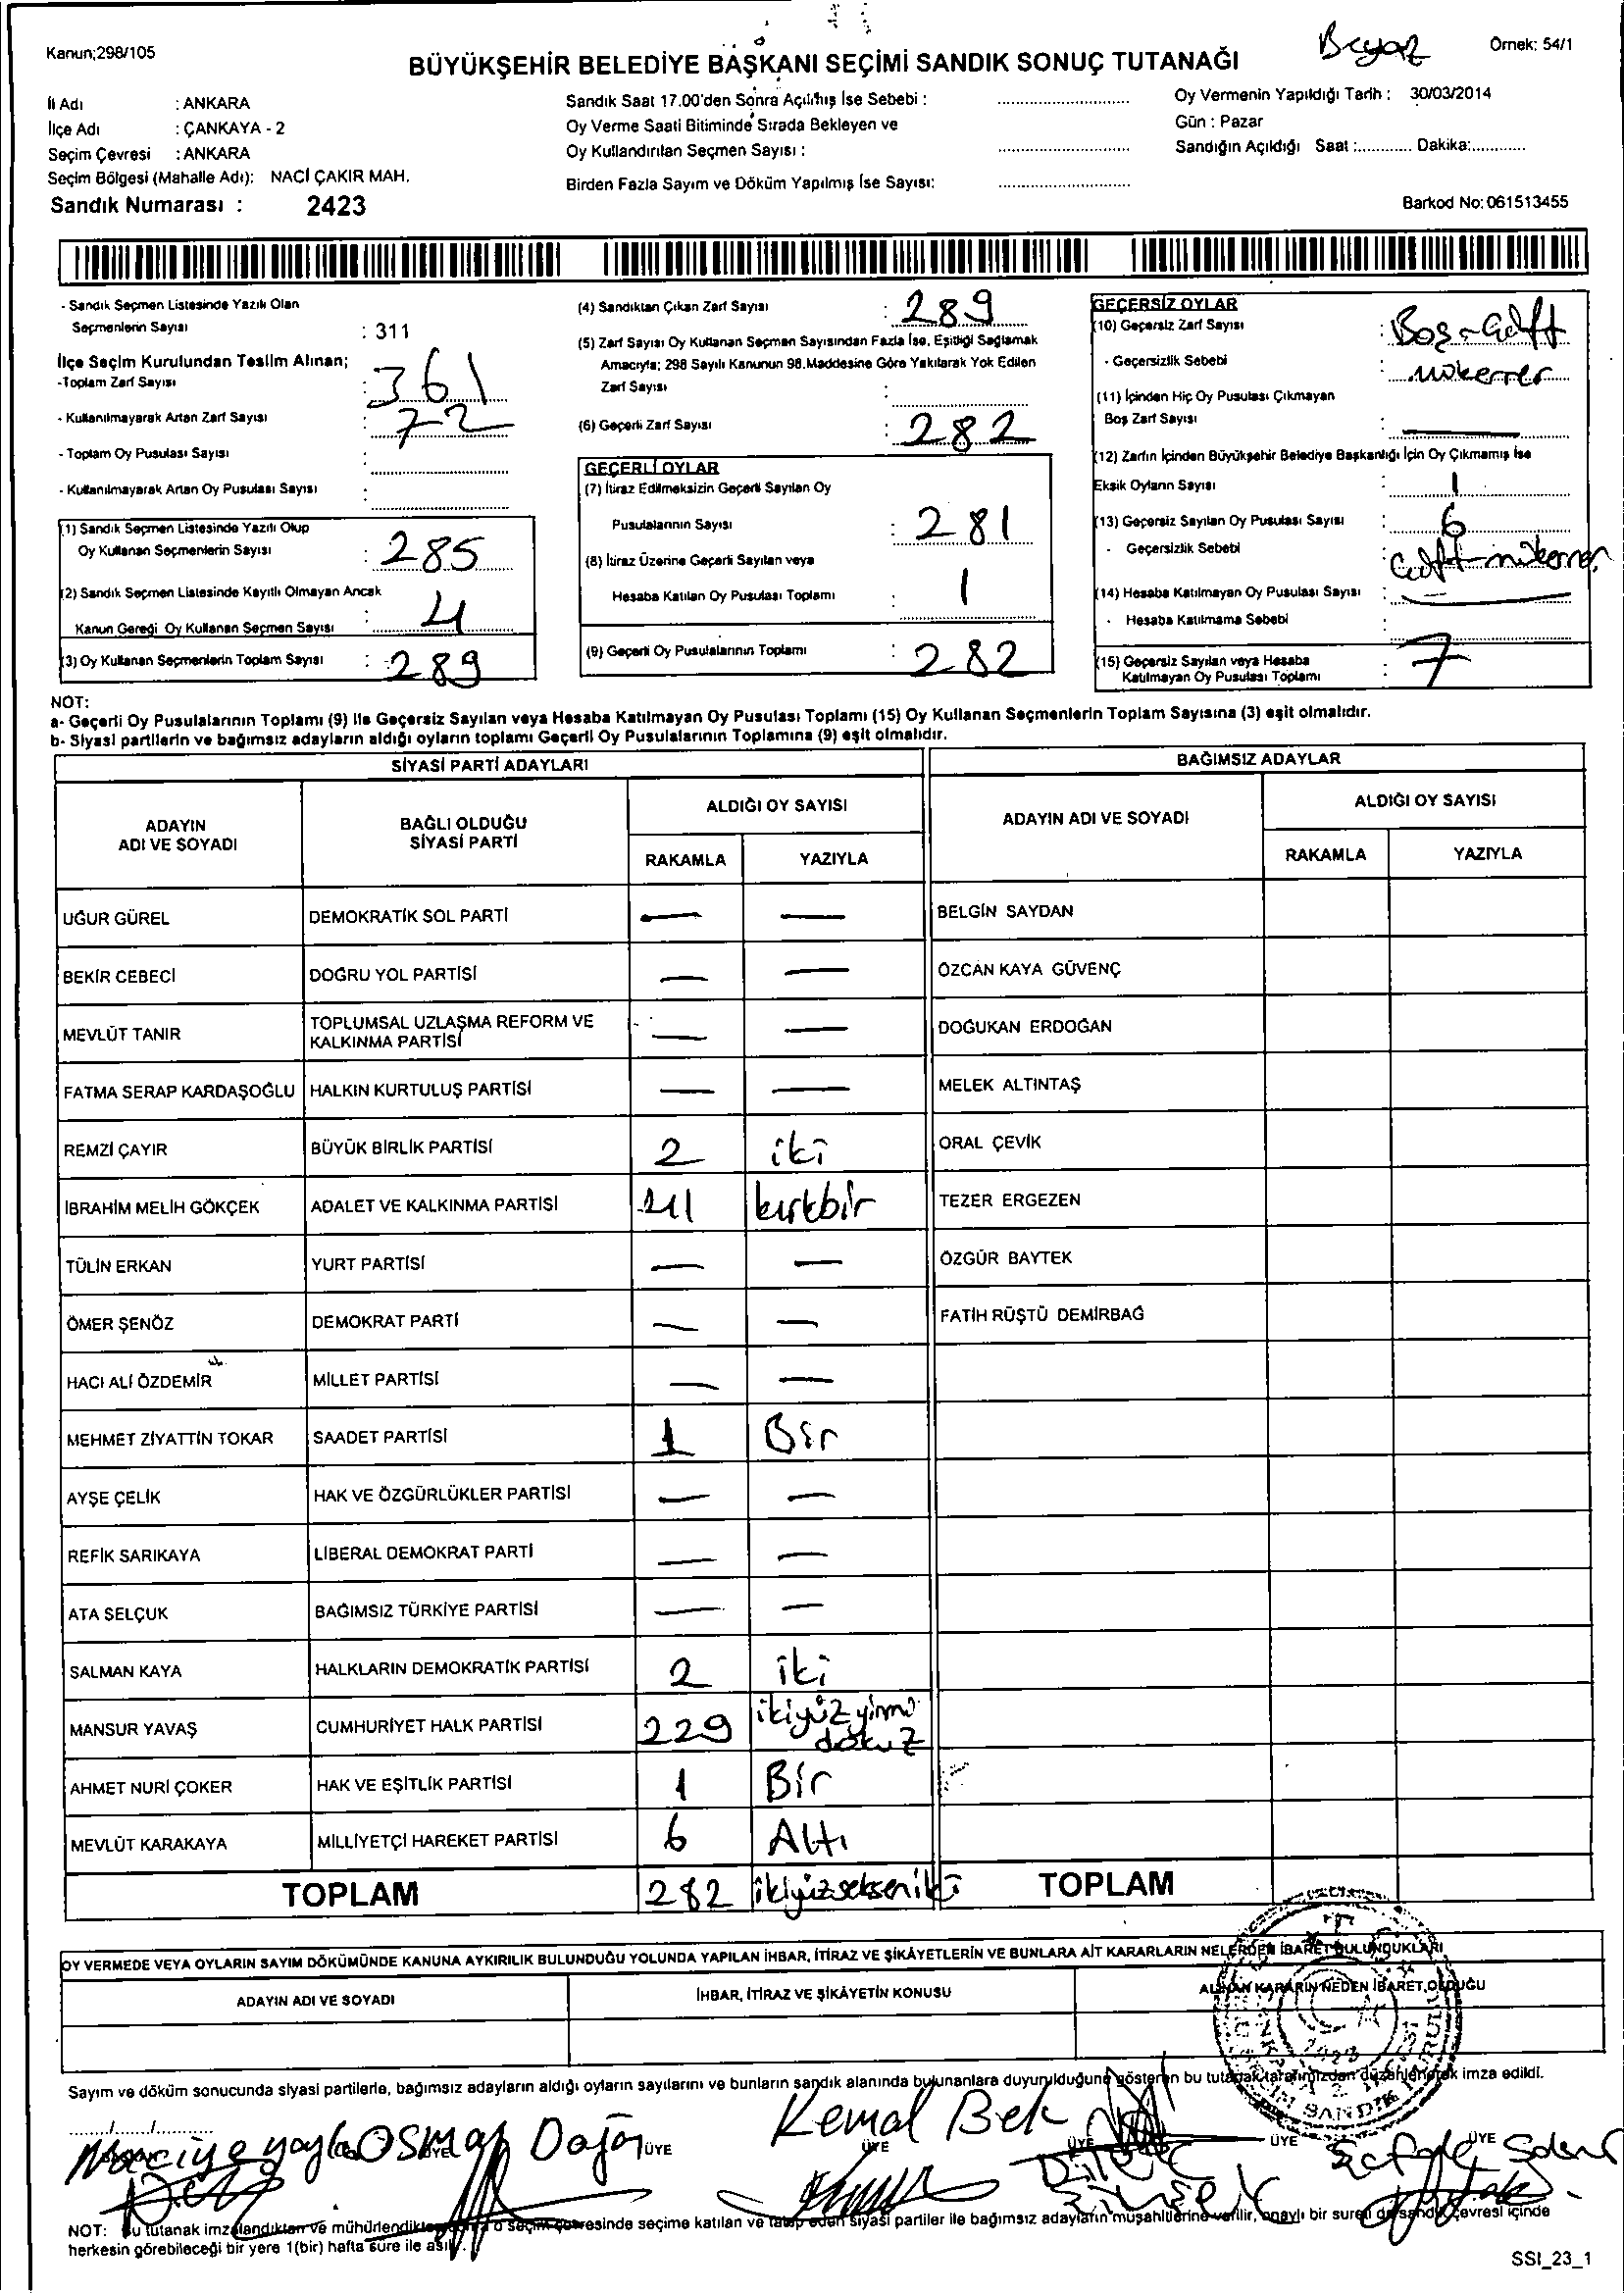 Kanun;298/105
BÜYÜKŞEHİR BELEDİYE BAŞKANI SEÇİMİ SANDIK SONUÇ TUTANAĞI
Beyaz
Örnek: 54/1
İl Adı : ANKARA
İlçe Adı : ÇANKAYA - 2
Seçim Çevresi : ANKARA
Seçim Bölgesi (Mahalle Adı): NACİ ÇAKIR MAH.
Sandık Numarası : 2423
Sandık Saat 17.00'den Sonra Açılmış İse Sebebi :
Oy Verme Saati Bitiminde Sırada Bekleyen ve
Oy Kullandırılan Seçmen Sayısı :
Birden Fazla Sayım ve Döküm Yapılmış İse Sayısı:
Oy Vermenin Yapıldığı Tarih : 30/03/2014
Gün : Pazar
Sandığın Açıldığı Saat :............ Dakika:............
Barkod No: 061513455
- Sandık Seçmen Listesinde Yazılı Olan
Seçmenlerin Sayısı : 311
İlçe Seçim Kurulundan Teslim Alınan;
-Toplam Zarf Sayısı : 361
- Kullanılmayarak Artan Zarf Sayısı : 72
- Toplam Oy Pusulası Sayısı :
- Kullanılmayarak Artan Oy Pusulası Sayısı :
(1) Sandık Seçmen Listesinde Yazılı Olup
Oy Kullanan Seçmenlerin Sayısı : 285
(2) Sandık Seçmen Listesinde Kayıtlı Olmayan Ancak
Kanun Gereği Oy Kullanan Seçmen Sayısı : 4
(3) Oy Kullanan Seçmenlerin Toplam Sayısı : 289
(4) Sandıktan Çıkan Zarf Sayısı : 289
(5) Zarf Sayısı Oy Kullanan Seçmen Sayısından Fazla İse, Eşitliği Sağlamak
Amacıyla; 298 Sayılı Kanunun 98.Maddesine Göre Yakılarak Yok Edilen
Zarf Sayısı :
(6) Geçerli Zarf Sayısı : 282
GEÇERLİ OYLAR
(7) İtiraz Edilmeksizin Geçerli Sayılan Oy
Pusulalarının Sayısı : 281
(8) İtiraz Üzerine Geçerli Sayılan veya
Hesaba Katılan Oy Pusulası Toplamı : 1
(9) Geçerli Oy Pusulalarının Toplamı : 282
GEÇERSİZ OYLAR
(10) Geçersiz Zarf Sayısı : Boş - Çift
- Geçersizlik Sebebi : mükerrer
(11) İçinden Hiç Oy Pusulası Çıkmayan
Boş Zarf Sayısı : —
(12) Zarfın İçinden Büyükşehir Belediye Başkanlığı İçin Oy Çıkmamış İse
Eksik Oyların Sayısı : 1
(13) Geçersiz Sayılan Oy Pusulası Sayısı : 6
- Geçersizlik Sebebi : Çift-mükerrer
(14) Hesaba Katılmayan Oy Pusulası Sayısı : —
- Hesaba Katılmama Sebebi :
(15) Geçersiz Sayılan veya Hesaba
Katılmayan Oy Pusulası Toplamı : 7
NOT:
a- Geçerli Oy Pusulalarının Toplamı (9) ile Geçersiz Sayılan veya Hesaba Katılmayan Oy Pusulası Toplamı (15) Oy Kullanan Seçmenlerin Toplam Sayısına (3) eşit olmalıdır.
b- Siyasi partilerin ve bağımsız adayların aldığı oyların toplamı Geçerli Oy Pusulalarının Toplamına (9) eşit olmalıdır.
SİYASİ PARTİ ADAYLARI
ADAYIN ADI VE SOYADI BAĞLI OLDUĞU SİYASİ PARTİ ALDIĞI OY SAYISI
RAKAMLA YAZIYLA
UĞUR GÜREL DEMOKRATİK SOL PARTİ — —
BEKİR CEBECİ DOĞRU YOL PARTİSİ — —
MEVLÜT TANIR TOPLUMSAL UZLAŞMA REFORM VE KALKINMA PARTİSİ — —
FATMA SERAP KARDAŞOĞLU HALKIN KURTULUŞ PARTİSİ — —
REMZİ ÇAYIR BÜYÜK BİRLİK PARTİSİ 2 iki
İBRAHİM MELİH GÖKÇEK ADALET VE KALKINMA PARTİSİ 41 kırkbir
TÜLİN ERKAN YURT PARTİSİ — —
ÖMER ŞENÖZ DEMOKRAT PARTİ — —
HACI ALİ ÖZDEMİR MİLLET PARTİSİ — —
MEHMET ZİYATTİN TOKAR SAADET PARTİSİ 1 Bir
AYŞE ÇELİK HAK VE ÖZGÜRLÜKLER PARTİSİ — —
REFİK SARIKAYA LİBERAL DEMOKRAT PARTİ — —
ATA SELÇUK BAĞIMSIZ TÜRKİYE PARTİSİ — —
SALMAN KAYA HALKLARIN DEMOKRATİK PARTİSİ 2 iki
MANSUR YAVAŞ CUMHURİYET HALK PARTİSİ 229 ikiyüzyirmi dokuz
AHMET NURİ ÇOKER HAK VE EŞİTLİK PARTİSİ 1 Bir
MEVLÜT KARAKAYA MİLLİYETÇİ HAREKET PARTİSİ 6 Altı
TOPLAM 282 ikiyüzsekseniki
BAĞIMSIZ ADAYLAR
ADAYIN ADI VE SOYADI ALDIĞI OY SAYISI
RAKAMLA YAZIYLA
BELGİN SAYDAN
ÖZCAN KAYA GÜVENÇ
DOĞUKAN ERDOĞAN
MELEK ALTINTAŞ
ORAL ÇEVİK
TEZER ERGEZEN
ÖZGÜR BAYTEK
FATİH RÜŞTÜ DEMİRBAĞ
TOPLAM
OY VERMEDE VEYA OYLARIN SAYIM DÖKÜMÜNDE KANUNA AYKIRILIK BULUNDUĞU YOLUNDA YAPILAN İHBAR, İTİRAZ VE ŞİKÂYETLERİN VE BUNLARA AİT KARARLARIN NELERDEN İBARET BULUNDUKLARI
ADAYIN ADI VE SOYADI İHBAR, İTİRAZ VE ŞİKÂYETİN KONUSU ALINAN KARARIN NEDEN İBARET OLDUĞU
Sayım ve döküm sonucunda siyasi partilerle, bağımsız adayların aldığı oyların sayılarını ve bunların sandık alanında bulunanlara duyurulduğunu gösteren bu tutanak tarafımızdan düzenlenerek imza edildi.
Naciye Osman Kemal Bek
ÜYE ÜYE ÜYE ÜYE ÜYE ÜYE
NOT: Bu tutanak imzalandıktan ve mühürlendikten sonra o seçim çevresinde seçime katılan ve talep eden siyasi partiler ile bağımsız adayların müşahitlerine verilir, onaylı bir sureti de sandık çevresi içinde
herkesin görebileceği bir yere 1(bir) hafta süre ile asılır.
SSI_23_1